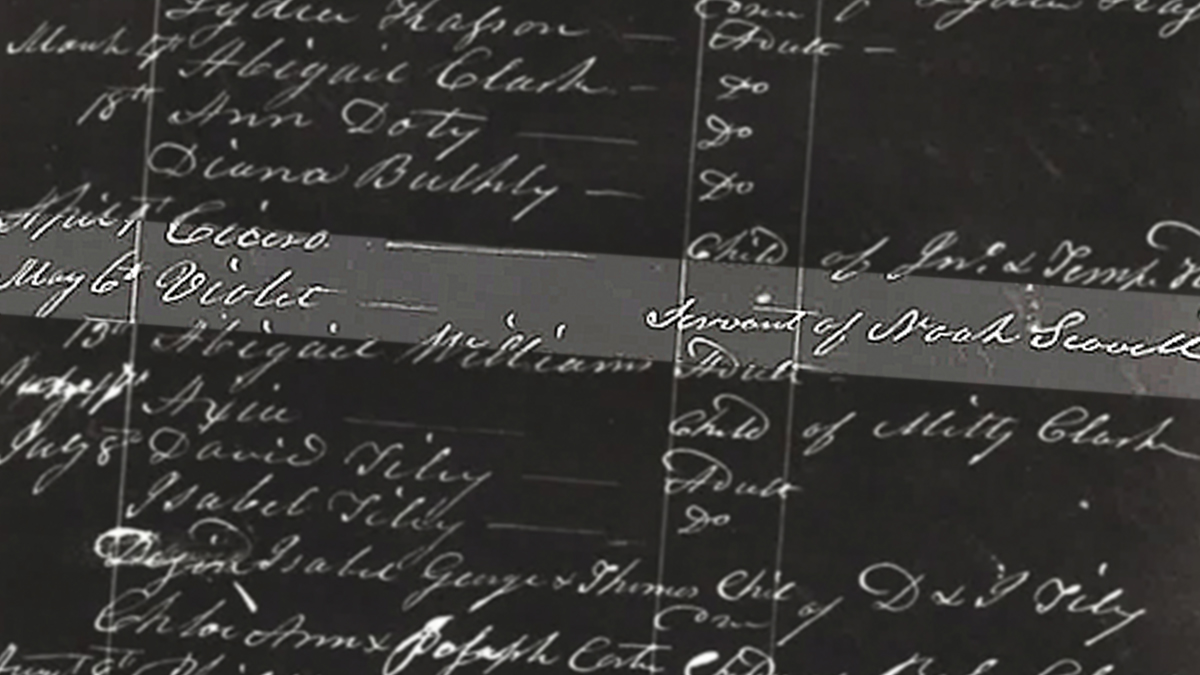 Lydia
March Abigail Clark — Adult —
18th Ann Doty — Do
Diana Bulkly — Do
Do
April 1st Cicero. — Child of Jno. & Temp.
May 6th Violet — Servant of Noah Scovell
13th Abigail Williams Adult —
Axia — Child of Mitty Clark
July 8th David Tiley — Adult
Isabel Tiley — Do
Isabel George & Thomas Chil of D & I Tiley
Chloe Ann & Joseph